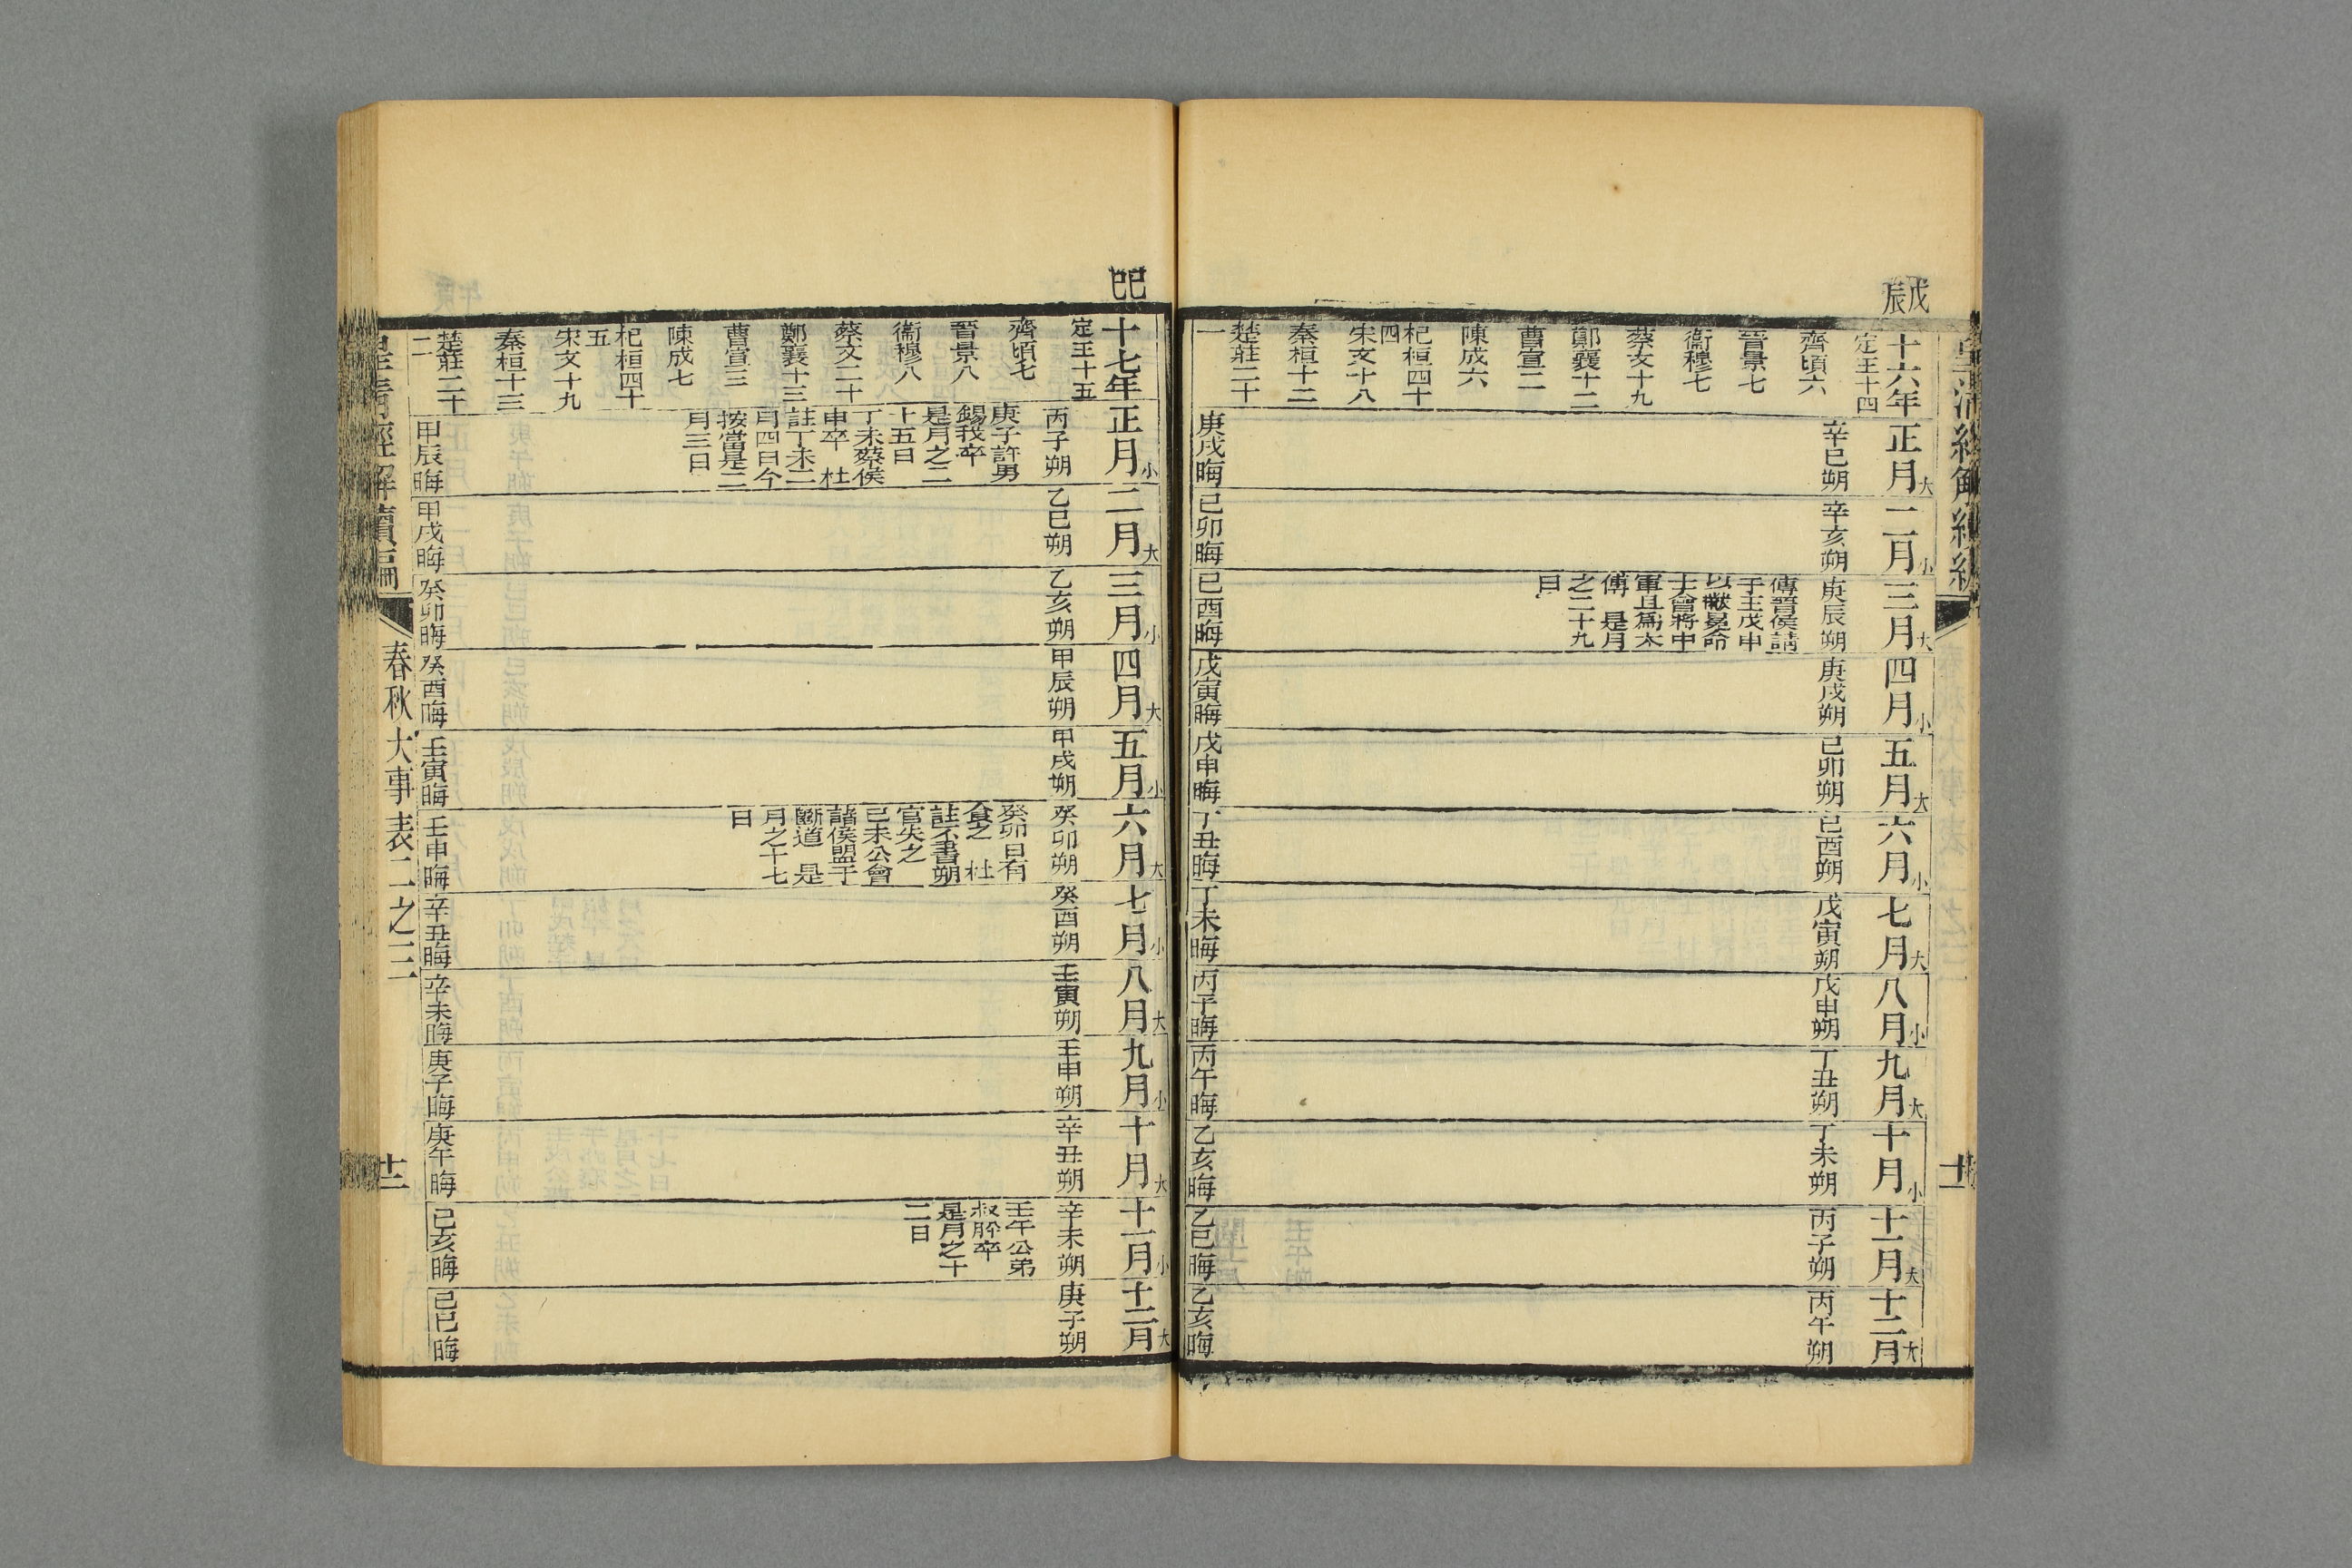 戊辰
十六年
定王十四
齊頃六
晉景七
衞穆七
蔡文十九
鄭襄十二
曹宣二
陳成六
杞桓四十
四
宋文十八
秦桓十二
楚莊二十
一
正月大
辛巳朔
庚戌晦
二月小
辛亥朔
己卯晦
三月大
庚辰朔
傳晉侯請
于王戊申
以黻冕命
士會將中
軍且爲太
傅 是月
之二十九
日
己酉晦
四月小
庚戌朔
戊寅晦
五月大
己卯朔
戊申晦
六月小
己酉朔
丁丑晦
七月大
戊寅朔
丁未晦
八月小
戊申朔
丙子晦
九月大
丁丑朔
丙午晦
十月小
丁未朔
乙亥晦
十一月大
丙子朔
乙巳晦
十二月大
丙午朔
乙亥晦
己巳
十七年
定王十五
齊頃七
晉景八
衞穆八
蔡文二十
鄭襄十三
曹宣三
陳成七
杞桓四十
五
宋文十九
秦桓十三
楚莊二十
二
正月小
丙子朔
庚子許男
錫我卒
是月之二
十五日
丁未蔡侯
申卒 杜
註丁未二
月四日今
按當是二
月三日
甲辰晦
二月大
乙巳朔
甲戌晦
三月小
乙亥朔
癸卯晦
四月大
甲辰朔
癸酉晦
五月小
甲戌朔
壬寅晦
六月大
癸卯朔
癸卯日有
食之 杜
註不書朔
官失之
己未公會
諸侯盟于
斷道 是
月之十七
日
壬申晦
七月小
癸酉朔
辛丑晦
八月大
壬寅朔
辛未晦
九月小
壬申朔
庚子晦
十月大
辛丑朔
庚午晦
十一月小
辛未朔
壬午公弟
叔肸卒
是月之十
二日
己亥晦
十二月大
庚子朔
己巳晦
皇淸經解續編
春秋大事表二之三
十二